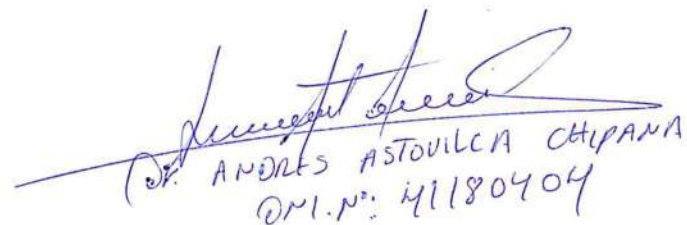 Dr. ANDRES ASTOVILCA CHIPANA
DNI. Nº: 41180404